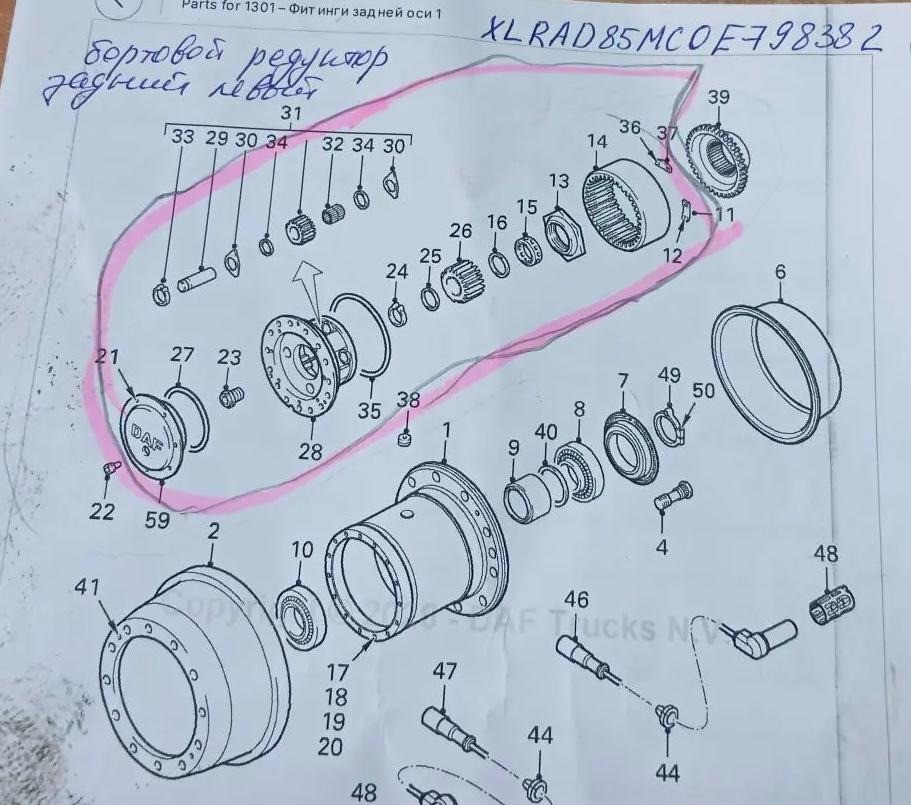 Parts for 1301 – Фитинги задней оси 1
XLRAD85MC0E798382
бортовой редуктор
задний левый
31
33 29 30 34 32 34 30
36 37 39
14
13
15
16
26
11
12
25
24
6
21 27 23
35
38
28
22 59
1
7 49
50
8
40
9
4
2
10
41
DAF
Copyright 2016 - DAF Trucks N.V.
17
18
19
20
46
48
47
44
44
48